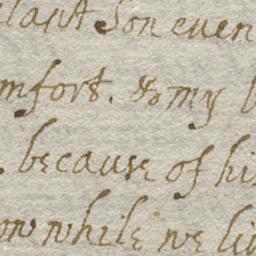 last Son even
mfort. & my
because of hi
on while we li